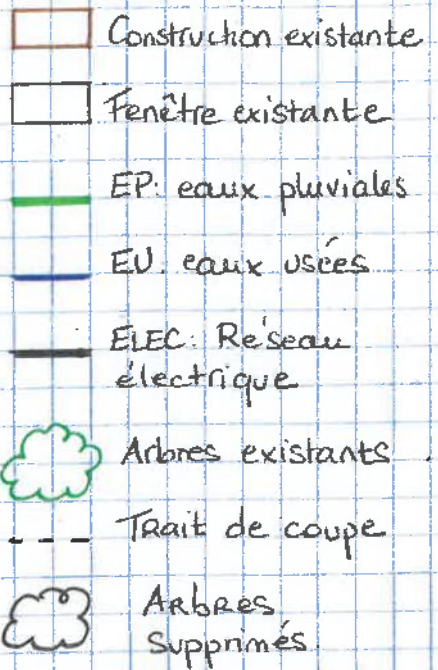 Construction existante
Fenêtre existante
EP: eaux pluviales
EU. eaux usées
ELEC: Réseau
électrique
Arbres existants.
Trait de coupe
ARbRes
supprimés.